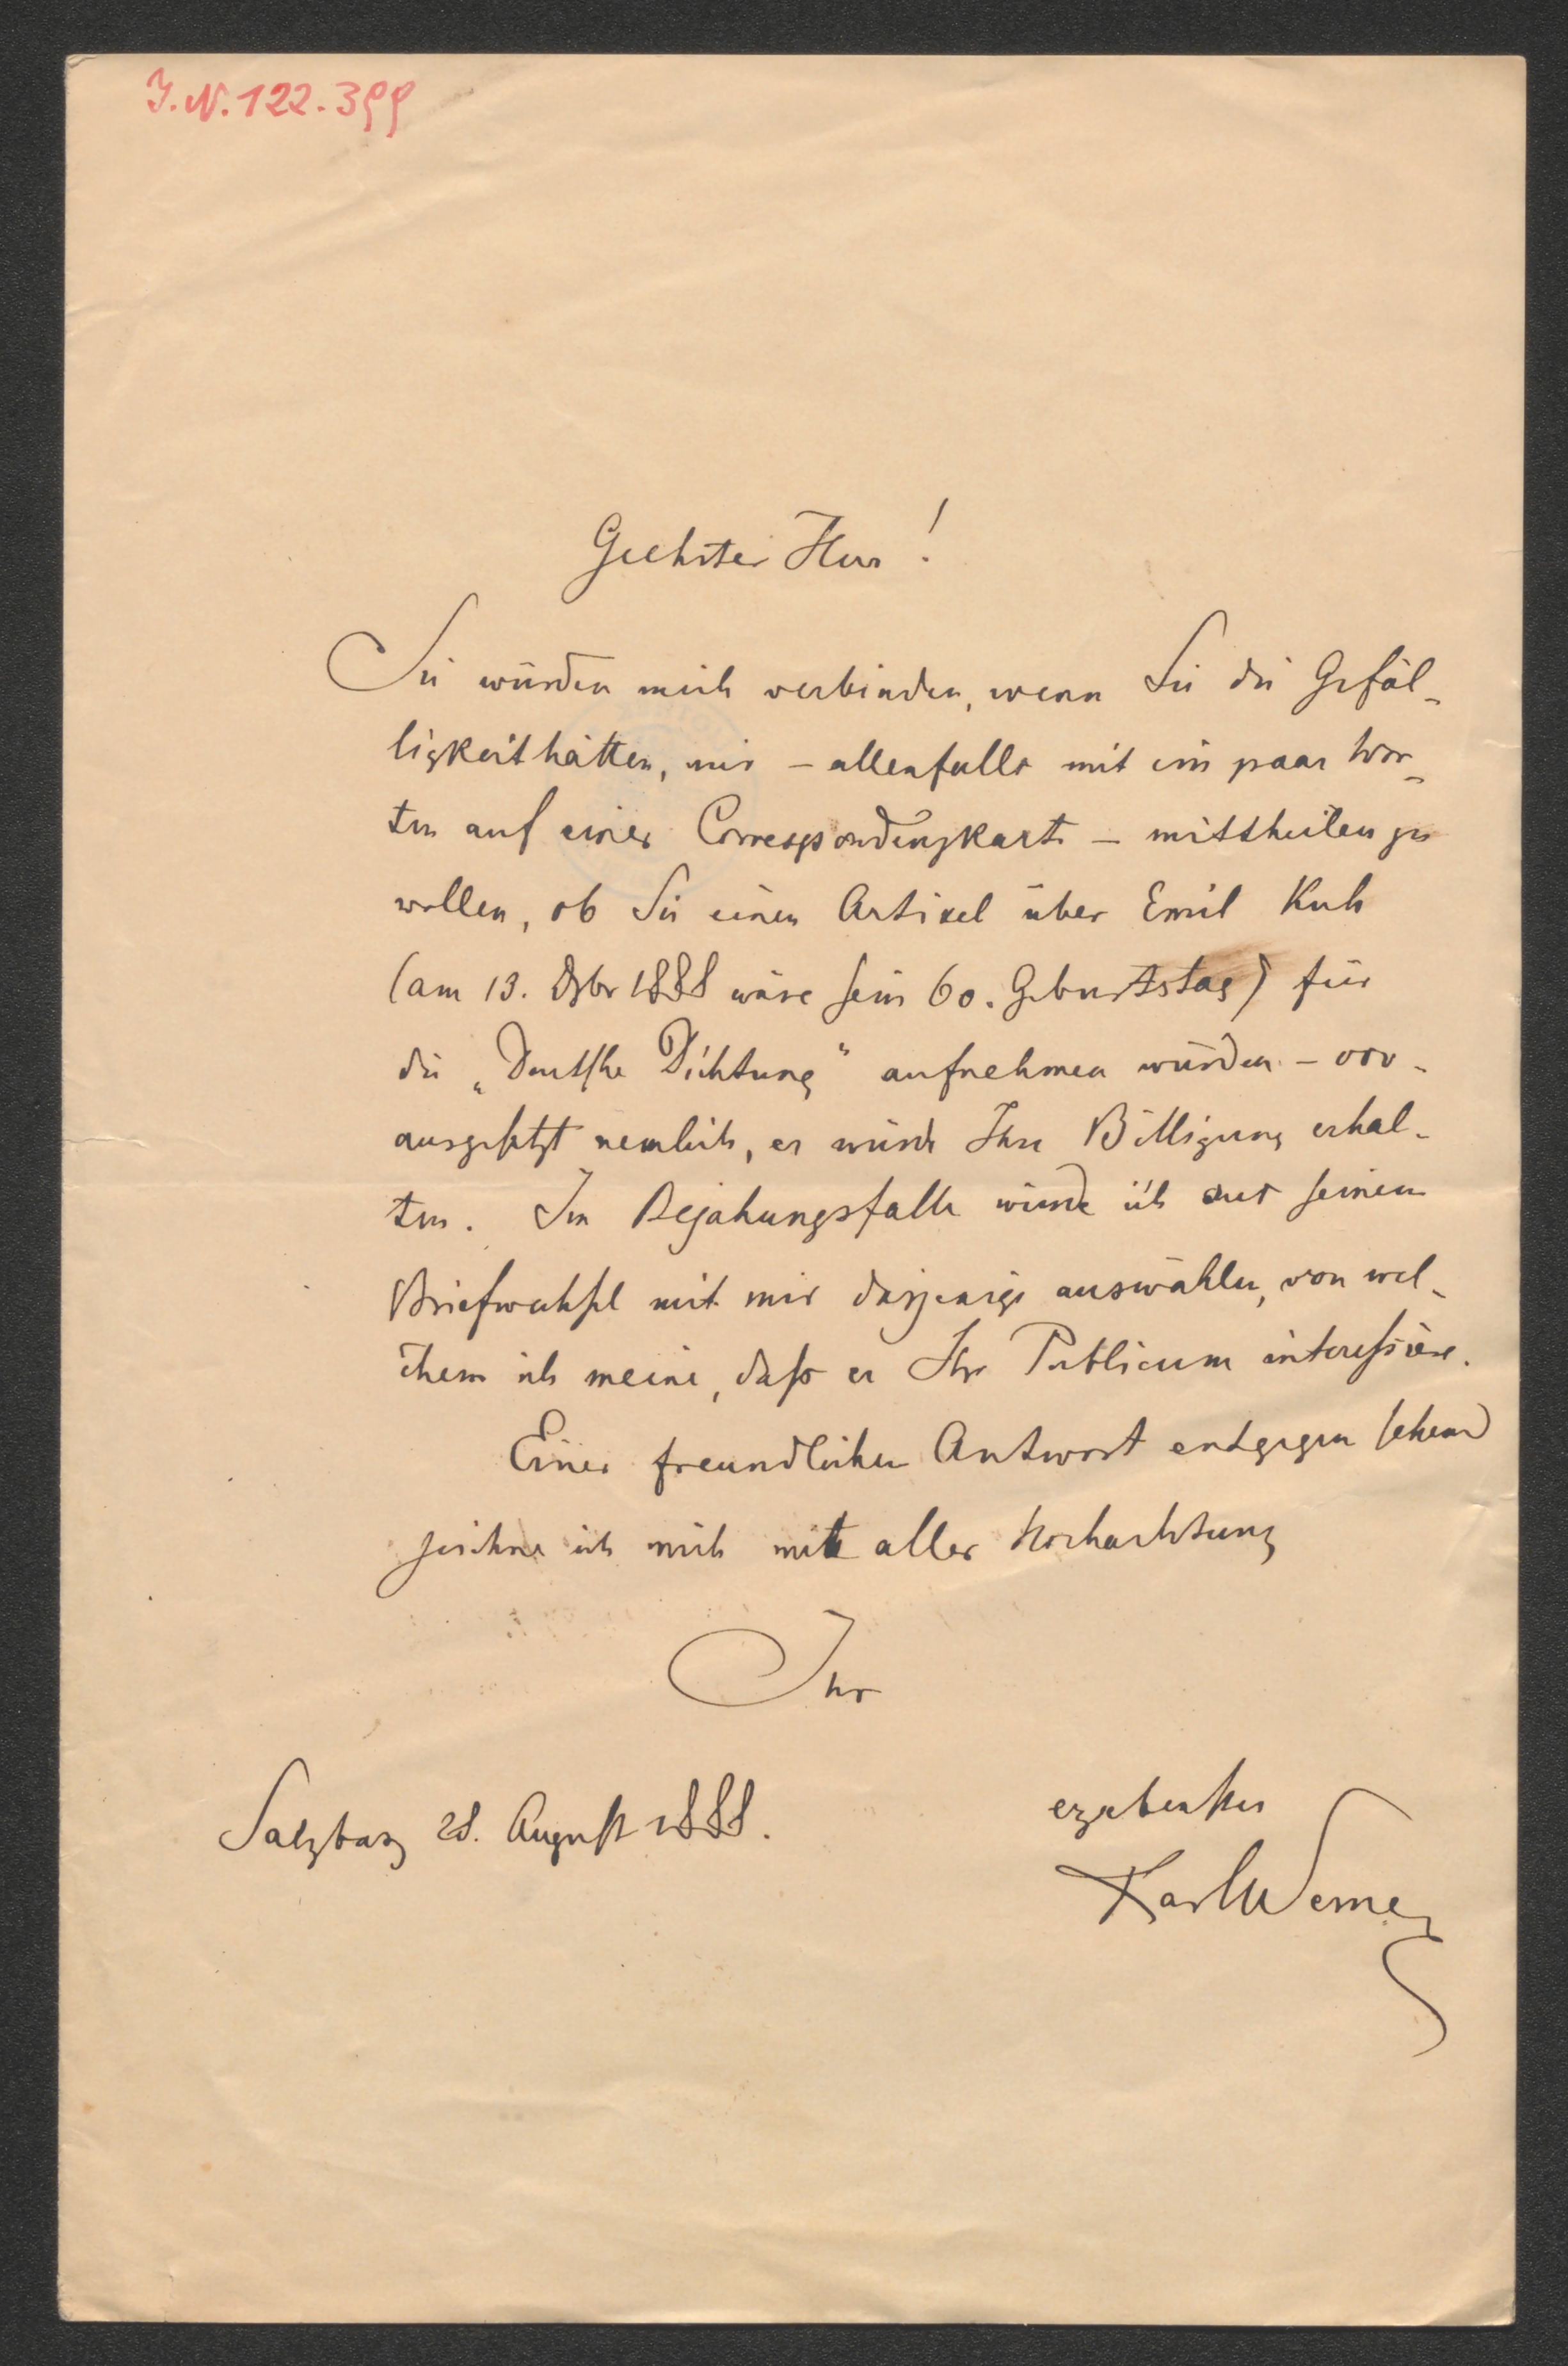 J.N. 122.399
Geehrter Herr!
Sie würden mich verbinden, wenn Sie die Gefäl-
ligkeit hätten, mir – allenfalls mit ein paar Wor-
ten auf einer Correspondenzkarte – mittheilen zu
wollen, ob Sie einen Artikel über Emil Kuh
(am 13. Dzbr 1888 wäre sein 60. Geburtstag) für
die „Deutsche Dichtung" aufnehmen würden – vor-
ausgesetzt nemlich, er würde Ihre Billigung erhal-
ten. Im Bejahungsfalle würde ich aus seinem
Briefwechsel mit mir dasjenige auswählen, von wel-
chem ich meine, dass er Ihr Publicum interessiere.
Einer freundlichen Antwort entgegen sehend
zeichne ich mich mit aller Hochachtung
Ihr
Salzburg 28. August 1888.
ergebenster
Karl Werner